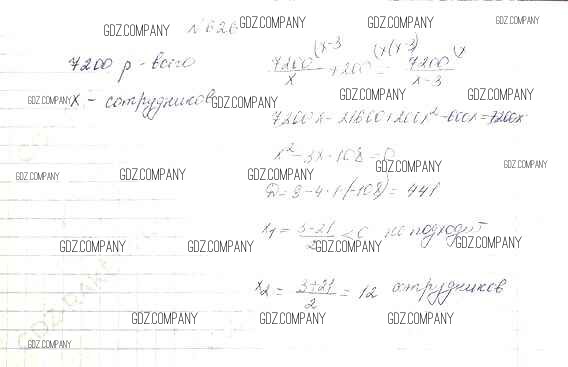 GDZ.COMPANY № 626 GDZ.COMPANY GDZ.COMPANY GDZ.COMPANY
7200 р - всего
7200/x (x-3 + 200 = (x(x-3) 7200/x-3 (x
GDZ.COMPANY x - сотрудников GDZ.COMPANY GDZ.COMPANY GDZ.COMPANY
7200x - 21600 + 200x² - 600x = 7200x
GDZ.COMPANY GDZ.COMPANY
x² - 3x - 108 = 0
GDZ.COMPANY GDZ.COMPANY GDZ.COMPANY GDZ.COMPANY
D = 9 - 4·1·(-108) = 441
x₁ = 3-21/2 < 0 не подходит
GDZ.COMPANY GDZ.COMPANY GDZ.COMPANY GDZ.COMPANY
x₂ = 3+21/2 = 12 сотрудников
GDZ.COMPANY GDZ.COMPANY GDZ.COMPANY
GDZ.COMPANY